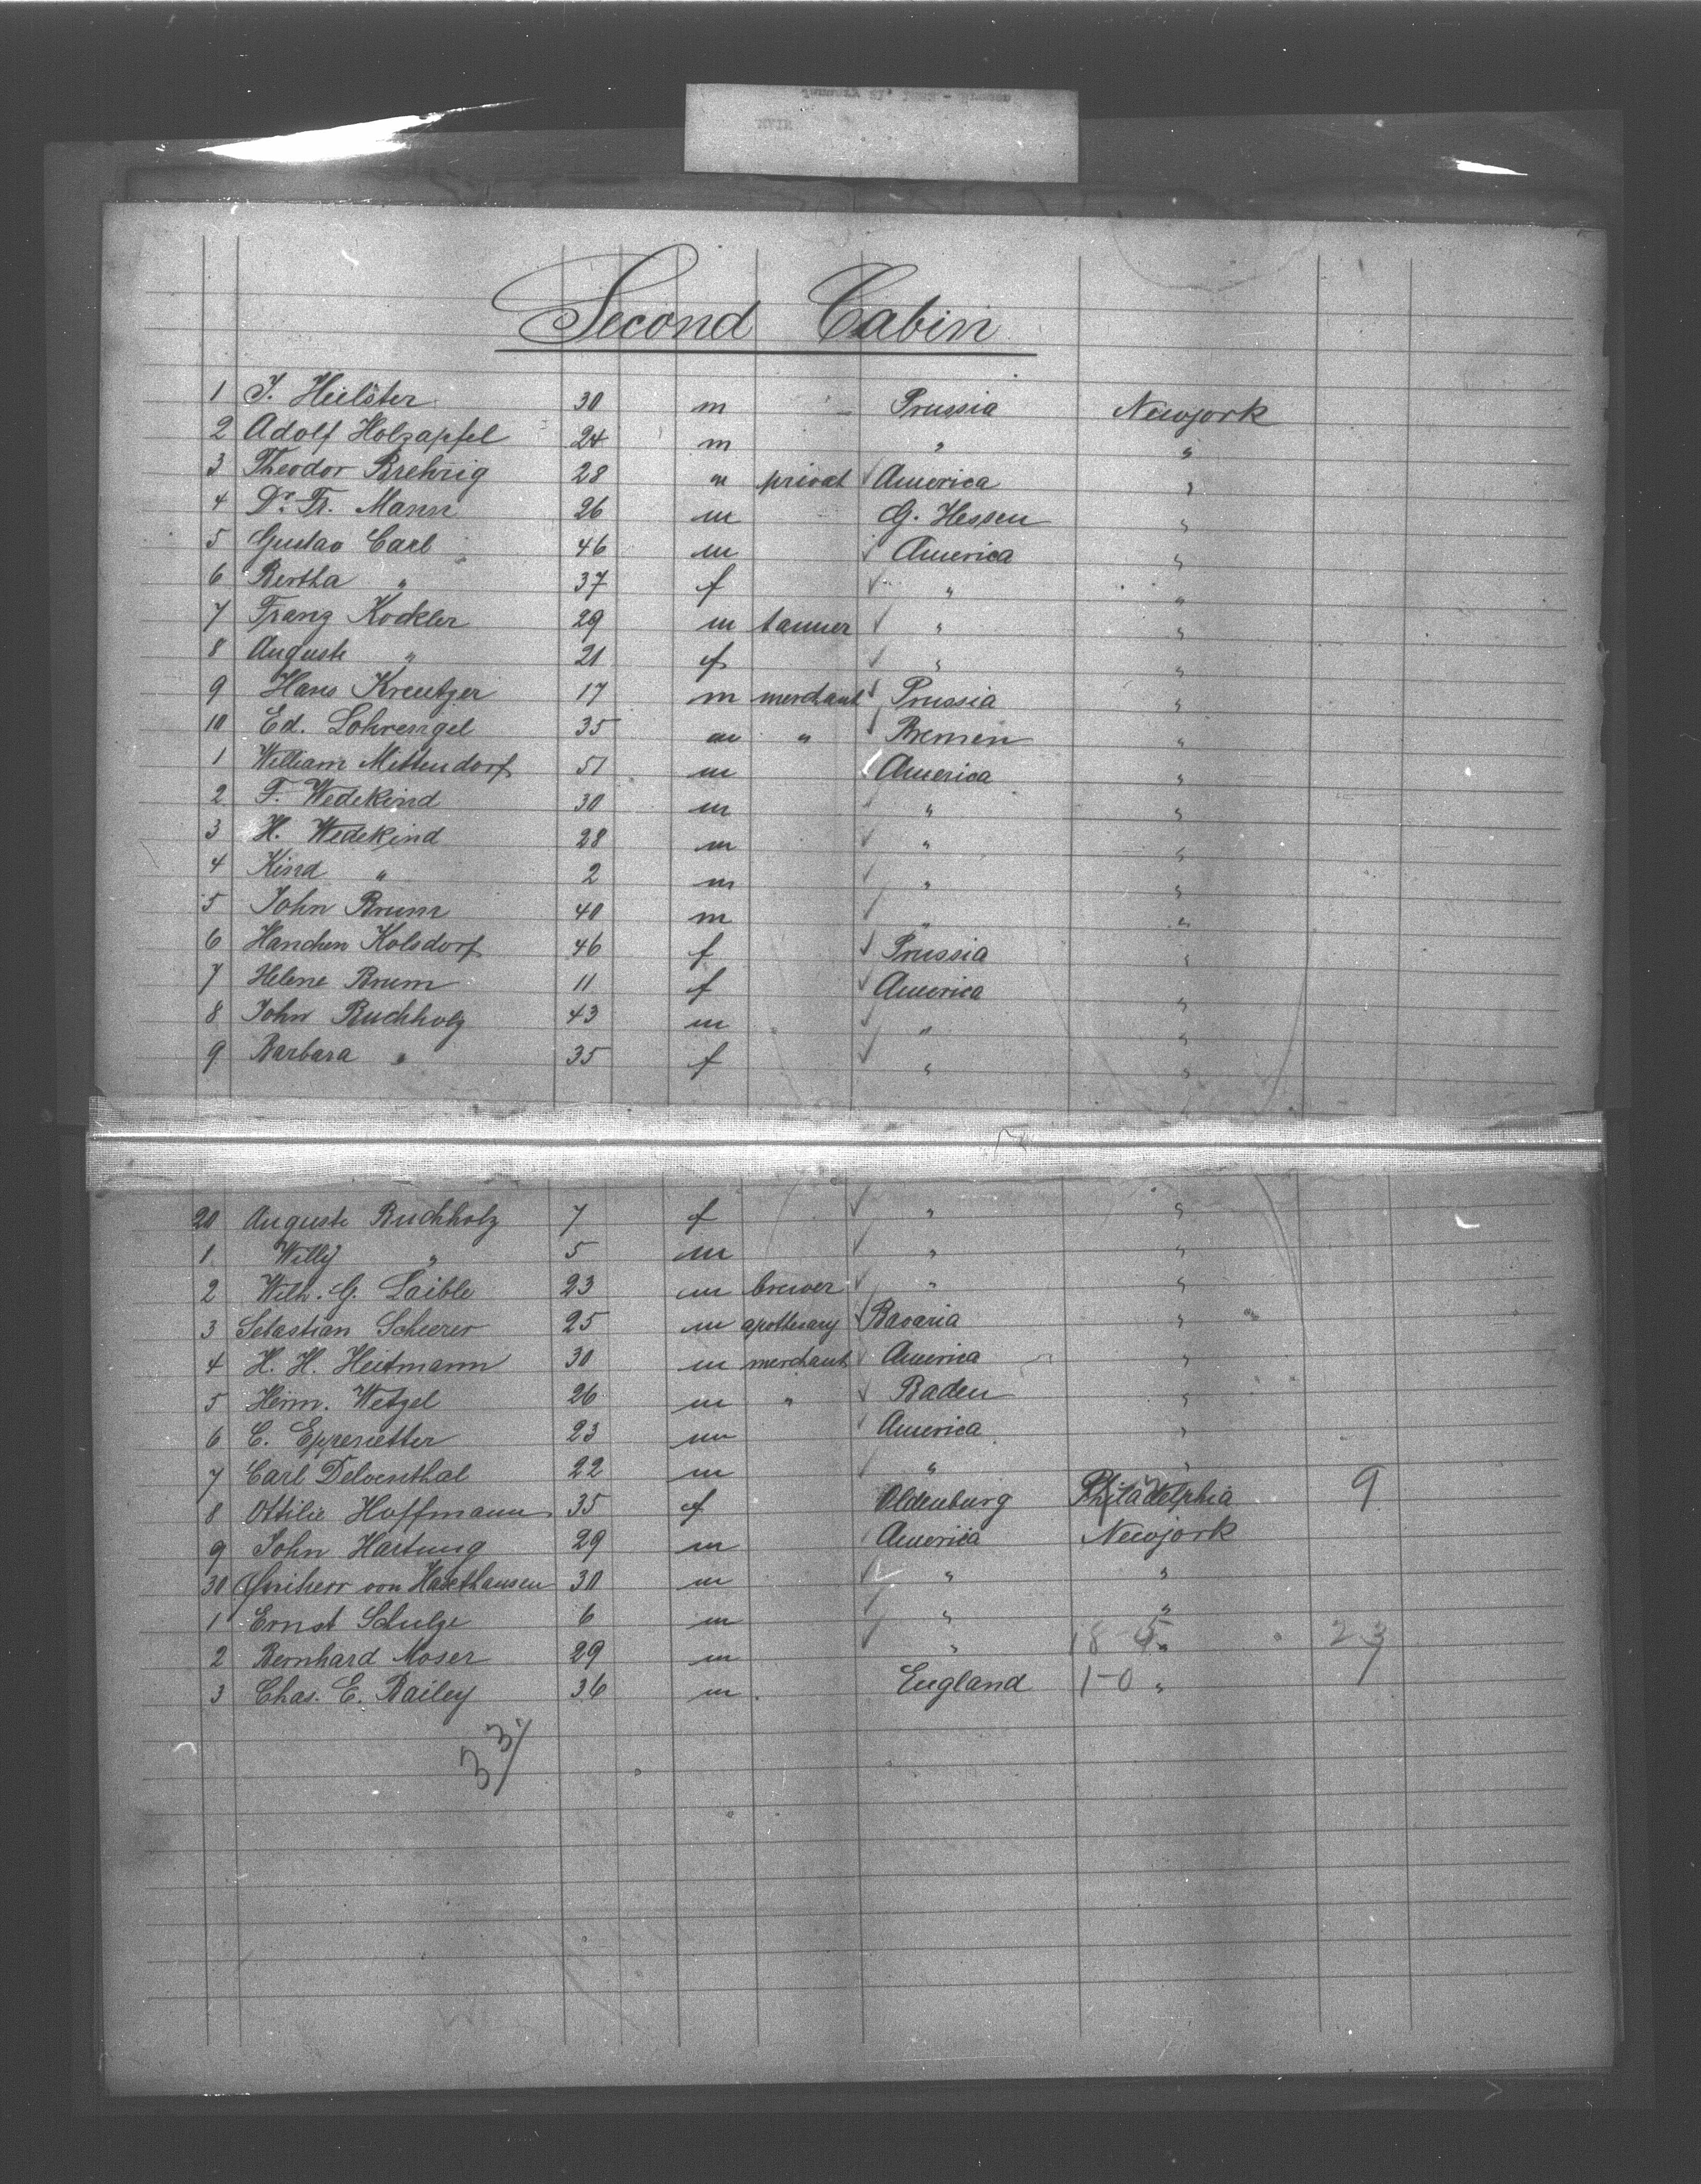 Second Cabin
1 J. Heilster 30 m Prussia Newjork
2 Adolf Holzapfel 24 m " "
3 Theodor Brehrig 28 m privat America "
4 Dr. Fr. Mann 26 m G. Hessen "
5 Gustav Carl 46 m America "
6 Bertha " 37 f " "
7 Franz Kockler 29 m tanner " "
8 Auguste " 21 f " "
9 Hans Kreutzer 17 m merchant Prussia "
10 Ed. Lohrengel 35 m " Bremen "
1 William Mittendorf 51 m America "
2 F. Wedekind 30 m " "
3 H. Wedekind 28 m " "
4 Kind " 2 m " "
5 John Brum 40 m " "
6 Hanchen Kolsdorf 46 f Prussia "
7 Helene Brum 11 f America "
8 John Buchholz 43 m " "
9 Barbara " 35 f " "
20 Auguste Buchholz 7 f " "
1 Willy " 5 m " "
2 Wilh. G. Laible 23 m brewer " "
3 Sebastian Scherer 25 m apothecary Bavaria "
4 H. H. Heitmann 30 m merchant America "
5 Herm. Wetzel 26 m " Baden "
6 C. 23 m America "
7 Carl Delventhal 22 m " "
8 Ottilie Hoffmann 35 f Oldenburg Philadelphia 9
9 John Hartung 29 m America Newjork
30 Freiherr von Haxthausen 30 m " "
1 Ernst Schulze 6 m " "
2 Bernhard Moser 29 m " 18 5 " 23
3 Chas. E. Bailey 36 m England 1-0 "
33/